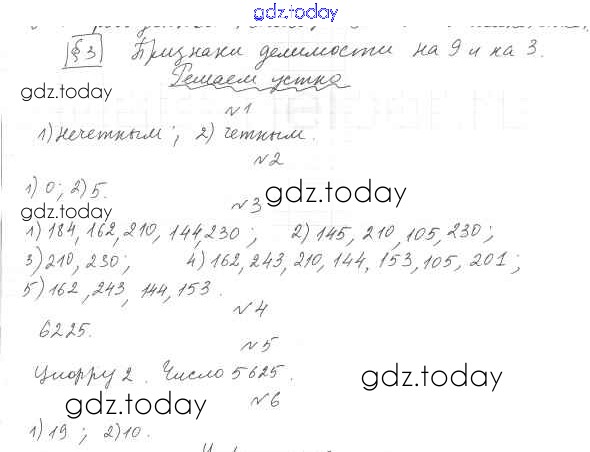 gdz.today
§3 Признаки делимости на 9 и на 3.
gdz.today
Решаем устно
№1
1) Нечетным; 2) четным.
№2
1) 0; 2) 5.
gdz.today
gdz.today
№3
1) 184, 162, 210, 144, 230; 2) 145, 210, 105, 230;
3) 210, 230; 4) 162, 243, 210, 144, 153, 105, 201;
5) 162, 243, 144, 153.
№4
6225.
№5
Цифру 2. Число 5625.
gdz.today
gdz.today
№6
1) 19; 2) 10.